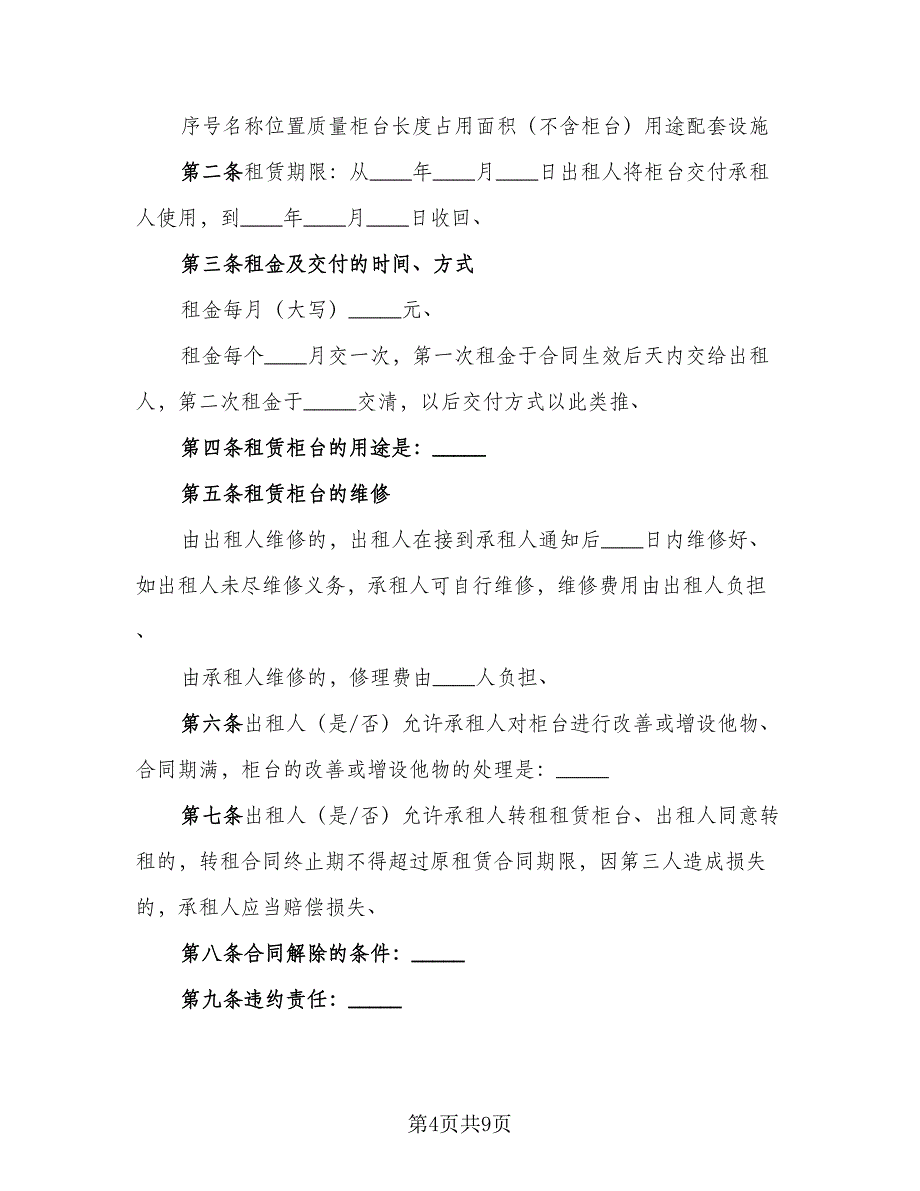 序号名称位置质量柜台长度占用面积（不含柜台）用途配套设施
第二条租赁期限：从____年____月____日出租人将柜台交付承租
人使用，到____年____月____日收回、
第三条租金及交付的时间、方式
租金每月（大写）_____元、
租金每个____月交一次，第一次租金于合同生效后天内交给出租
人，第二次租金于_____交清，以后交付方式以此类推、
第四条租赁柜台的用途是：_____
第五条租赁柜台的维修
由出租人维修的，出租人在接到承租人通知后____日内维修好、
如出租人未尽维修义务，承租人可自行维修，维修费用由出租人负担
、
由承租人维修的，修理费由____人负担、
第六条出租人（是/否）允许承租人对柜台进行改善或增设他物、
合同期满，柜台的改善或增设他物的处理是：_____
第七条出租人（是/否）允许承租人转租租赁柜台、出租人同意转
租的，转租合同终止期不得超过原租赁合同期限，因第三人造成损失
的，承租人应当赔偿损失、
第八条合同解除的条件：_____
第九条违约责任：_____
第4页共9页